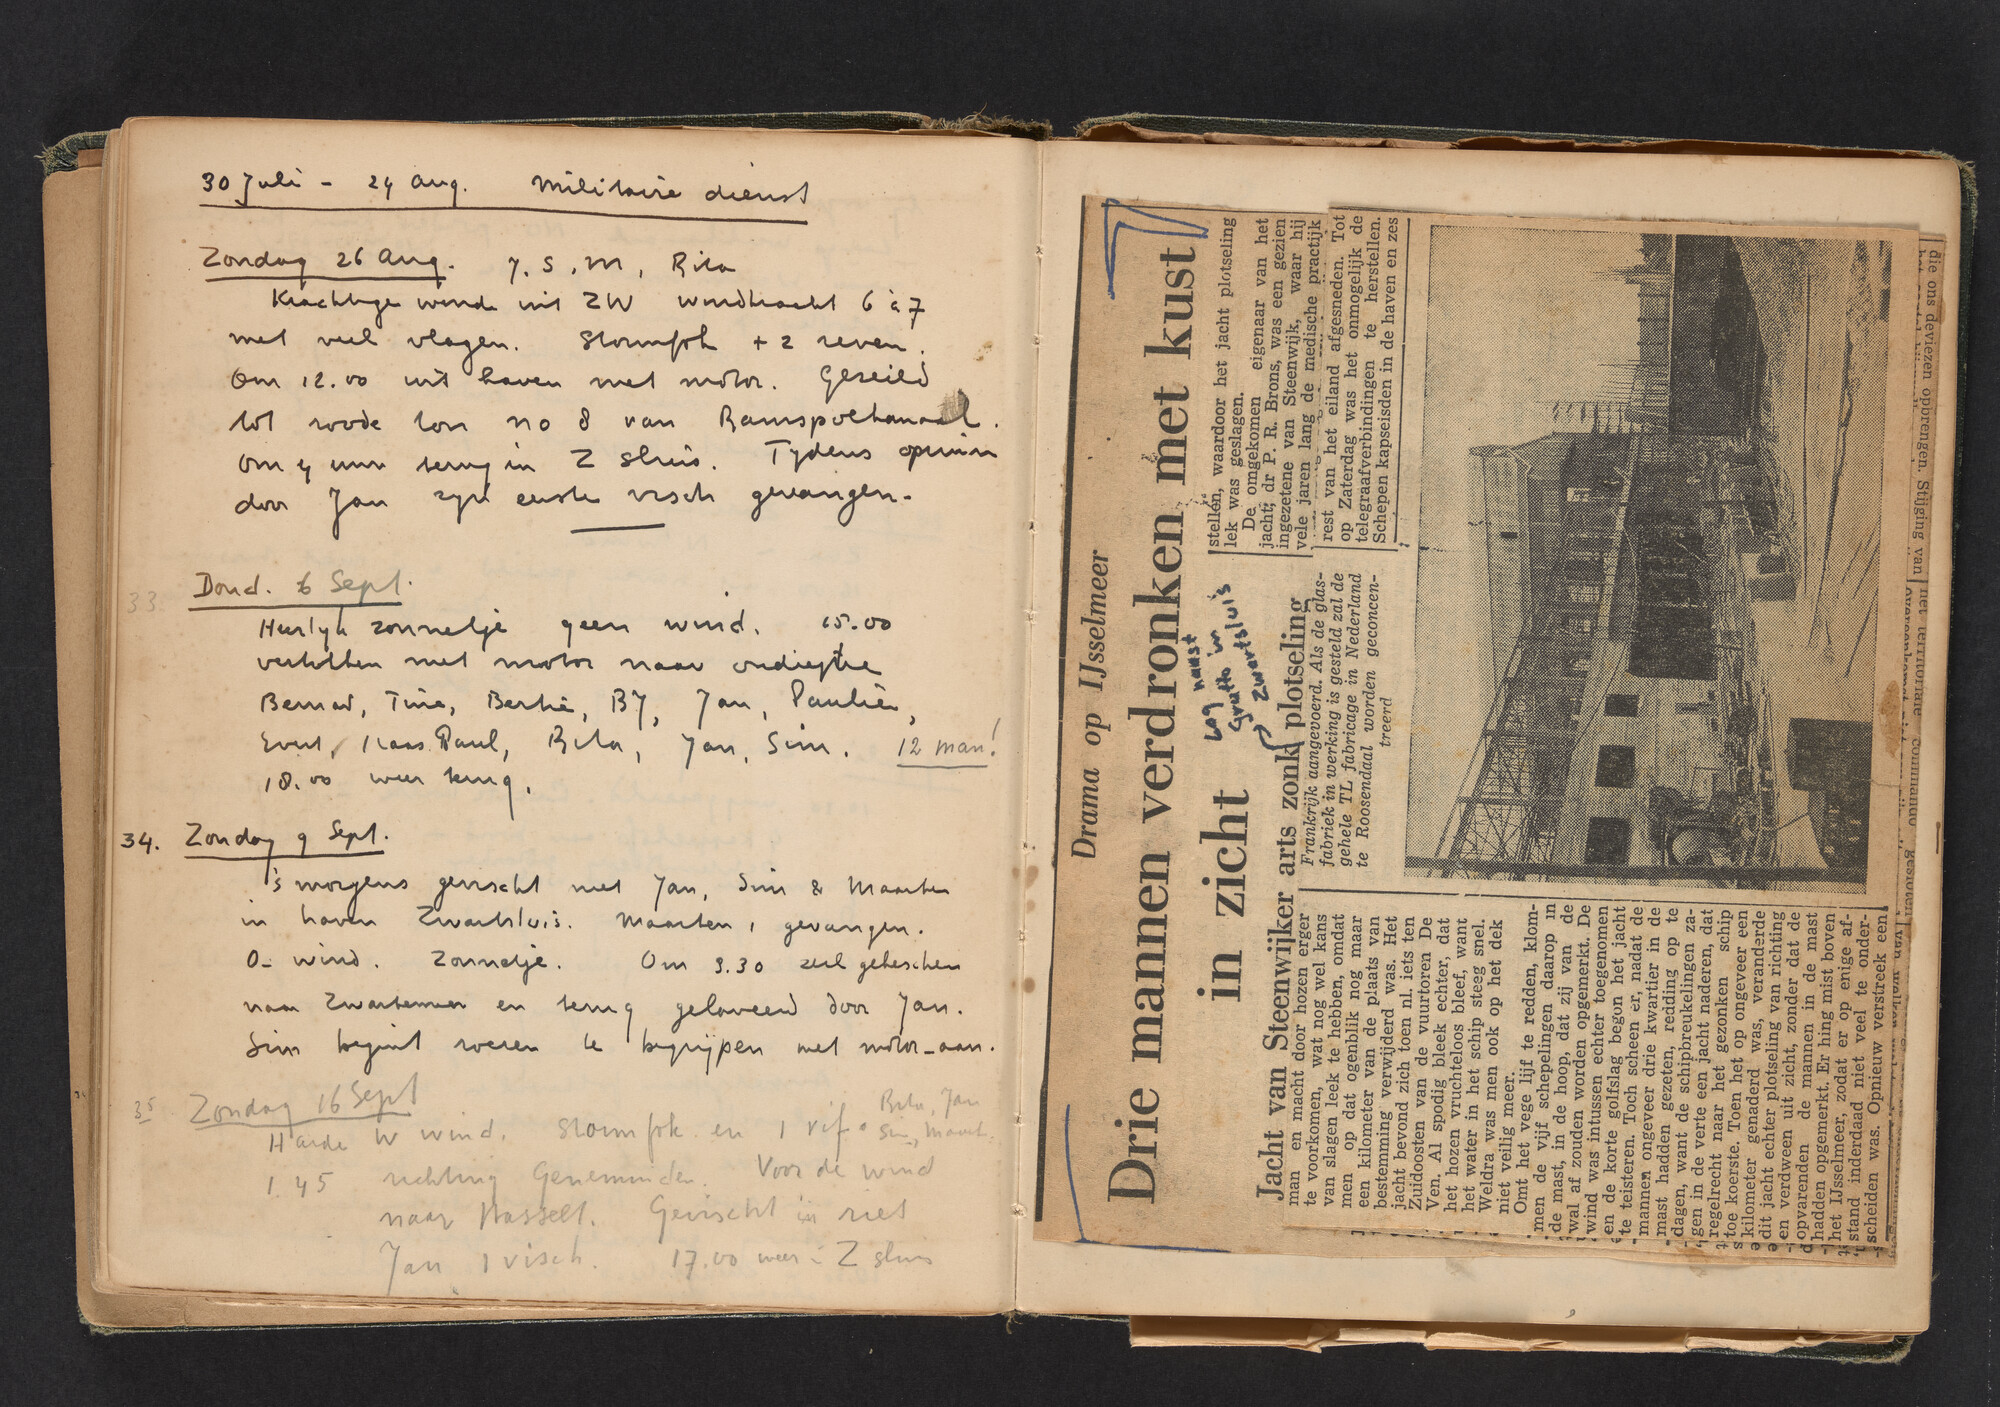 30 Juli - 24 Aug. Militaire dienst
Zondag 26 Aug. J, S, M, Rita
Krachtige wind uit ZW windkracht 6 à 7
met veel vlagen. Stormfok + 2 reven.
Om 12.00 uit haven met motor. Gezeild
tot roode ton no 8 van Ramspolkanaal.
Om 4 uur terug in Z sluis. Tydens opruim
door Jan zyn eerste visch gevangen.
33 Dond. 6 Sept.
Heerlyk zonnetje geen wind. 15.00
vertrokken met motor naar ondiepte
Bernard, Tine, Bertie, BJ, Jan, Paulien,
Evert, Klaas Paul, Rita, Jan, Sim. 12 man!
18.00 weer terug.
34. Zondag 9 Sept.
's morgens gevischt met Jan, Sim & Maarten
in haven Zwartsluis. Maarten 1 gevangen.
O- wind. Zonnetje. Om 3.30 zeil geheschen
naar Zwartemeer en terug gelaveerd door Jan.
Sim begint roeren te begrijpen met motor-aan.
35 Zondag 16 Sept
Harde W wind. Stormfok en 1 rif. Rita, Jan
Sim, Maart.
1.45 richting Genemuiden. Voor de wind
naar Hasselt. Gevischt in riet
Jan 1 visch. 17.00 weer in Z sluis
Drama op IJsselmeer
Drie mannen verdronken met kust
in zicht
lag naast
Grutto in
Zwartsluis
Jacht van Steenwijker arts zonk plotseling
man en macht door hozen erger
te voorkomen, wat nog wel kans
van slagen leek te hebben, omdat
men op dat ogenblik nog maar
een kilometer van de plaats van
bestemming verwijderd was. Het
jacht bevond zich toen nl. iets ten
Zuidoosten van de vuurtoren De
Ven. Al spodig bleek echter, dat
het hozen vruchteloos bleef, want
het water in het schip steeg snel.
Weldra was men ook op het dek
niet veilig meer.
Omt het vege lijf te redden, klom-
men de vijf schepelingen daarop in
de mast, in de hoop, dat zij van de
wal af zouden worden opgemerkt. De
wind was intussen echter toegenomen
en de korte golfslag begon het jacht
te teisteren. Toch scheen er, nadat de
mannen ongeveer drie kwartier in de
mast hadden gezeten, redding op te
dagen, want de schipbreukelingen za-
gen in de verte een jacht naderen, dat
regelrecht naar het gezonken schip
toe koerste. Toen het op ongeveer een
kilometer genaderd was, veranderde
dit jacht echter plotseling van richting
en verdween uit zicht, zonder dat de
opvarenden de mannen in de mast
hadden opgemerkt. Er hing mist boven
het IJsselmeer, zodat er op enige af-
stand inderdaad niet veel te onder-
scheiden was. Opnieuw verstreek een
Frankrijk aangevoerd. Als de glas-
fabriek in werking is gesteld zal de
gehele TL fabricage in Nederland
te Roosendaal worden geconcen-
treerd
stellen, waardoor het jacht plotseling
lek was geslagen.
De omgekomen eigenaar van het
jacht, dr P. R. Brons, was een gezien
ingezetene van Steenwijk, waar hij
vele jaren lang de medische practijk
rest van het eiland afgesneden. Tot
op Zaterdag was het onmogelijk de
telegraafverbindingen te herstellen.
Schepen kapseisden in de haven en zes
die ons deviezen opbrengen. Stijging van
het territoriale commando